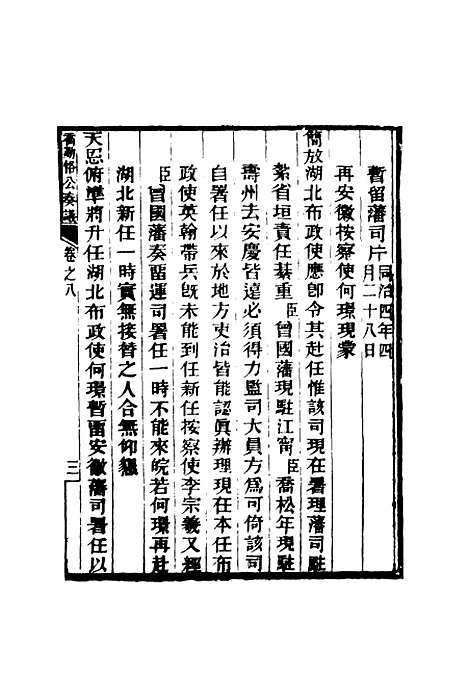 暫留藩司片同治四年四月二十八日
再安徽按察使何璟現蒙
簡放湖北布政使應卽令其赴任惟該司現在署理藩司駐
紮省垣責任綦重臣曾國藩現駐江甯臣喬松年現駐
壽州去安慶皆遠必須得力監司大員方爲可倚該司
自署任以來於地方吏治皆能認眞辦理現在本任布
政使英翰帶兵旣未能到任新任按察使李宗羲又經
臣曾國藩奏留運司署任一時不能來皖若何璟再赴
湖北新任一時實無接替之人合無仰懇
天恩俯準將升任湖北布政使何璟暫畱安徽藩司署任以
喬勤恪公奏議 卷之八 三